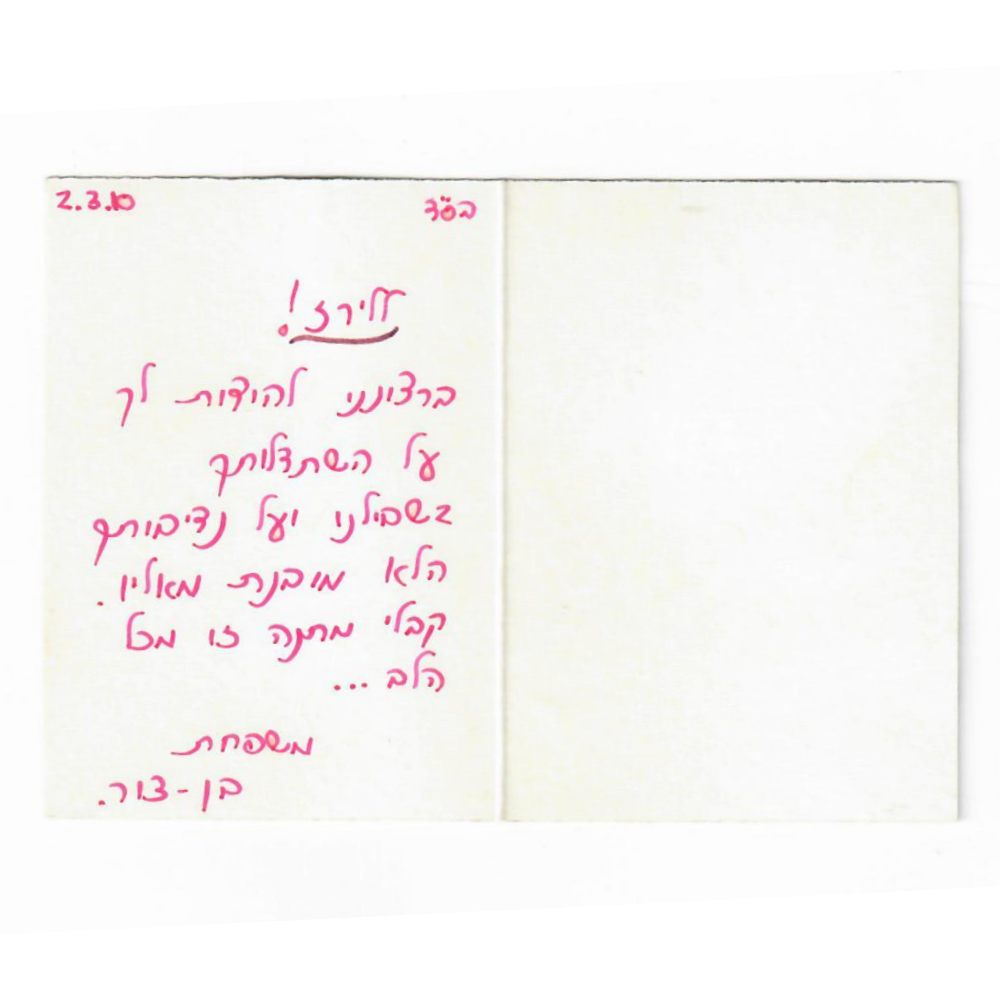 בס"ד 2.3.10
ללירז!
ברצונני להודות לך
על השתדלותך
בשבילנו ועל נדיבותך
הלא מובנת מאליו.
קבלי מתנה זו מכל
הלב...
משפחת
בן-צור.